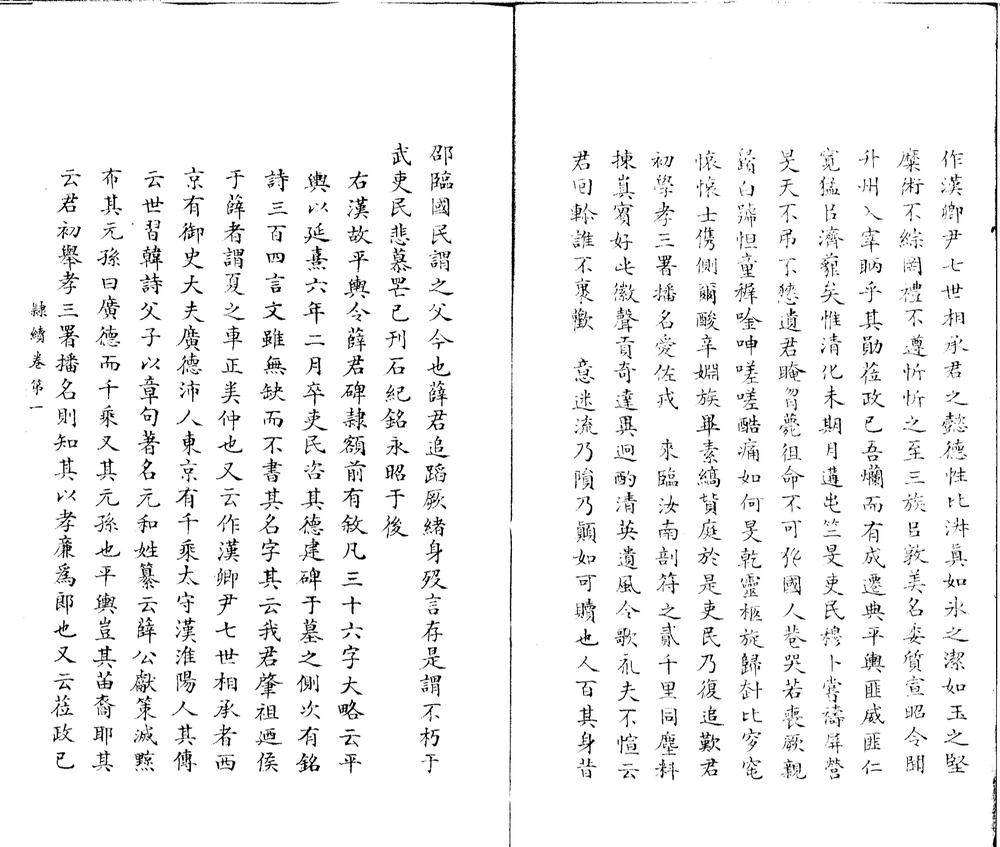 作漢卿尹七世相承君之懿德性比淋真如氷之潔如玉之堅
糜術不綜罔禮不遵忻忻之至三族㠯敦美名委質宣昭令聞
升州入宰眪乎其勛莅政已吾爤而有成遷典平輿匪威匪仁
寛猛㠯濟雍矣惟清化未期月遘屯竺旻吏民穆卜甞禱屏營
旻天不弔不憖遺君晻曶薨徂命不可化國人巷哭若喪厥親
號怛童稺唫呻嗟嗟酷痛如何旻乾靈柩旋歸
懷懷士儁側爾酸辛婣族畢素縞贊庭於是吏民乃復追歎君
初學孝三署播名爰佐戎 來臨汝南剖符之貳千里同塵料
揀真賓好此徽聲貢奇達異迥酌清英遺風令歌礼夫不愃云
君回軫誰不褱歡 意迷流乃隕乃顛如可贖也人百其身昔
邵臨國民謂之父今也薛君追蹈厥緒身歿言存是謂不朽于
武吏民悲慕罡已刊石紀銘永昭于後
右漢故平輿令薛君碑隷額前有敘凡三十六字大略云平
輿以延熹六年二月卒吏民咨其德建碑于墓之側次有銘
詩三百四言文雖無缺而不書其名字其云我君肇祖迺侯
于薛者謂夏之車正奚仲也又云作漢卿尹七世相承者西
京有御史大夫廣德沛人東京有千乘太守漢淮陽人其傳
云世習韓詩父子以章句著名元和姓纂云薛公獻策滅黥
布其元孫曰廣德而千乘又其元孫也平輿豈其苗裔耶其
云君初舉孝三署播名則知其以孝廉爲郎也又云莅政已
隷續卷第一